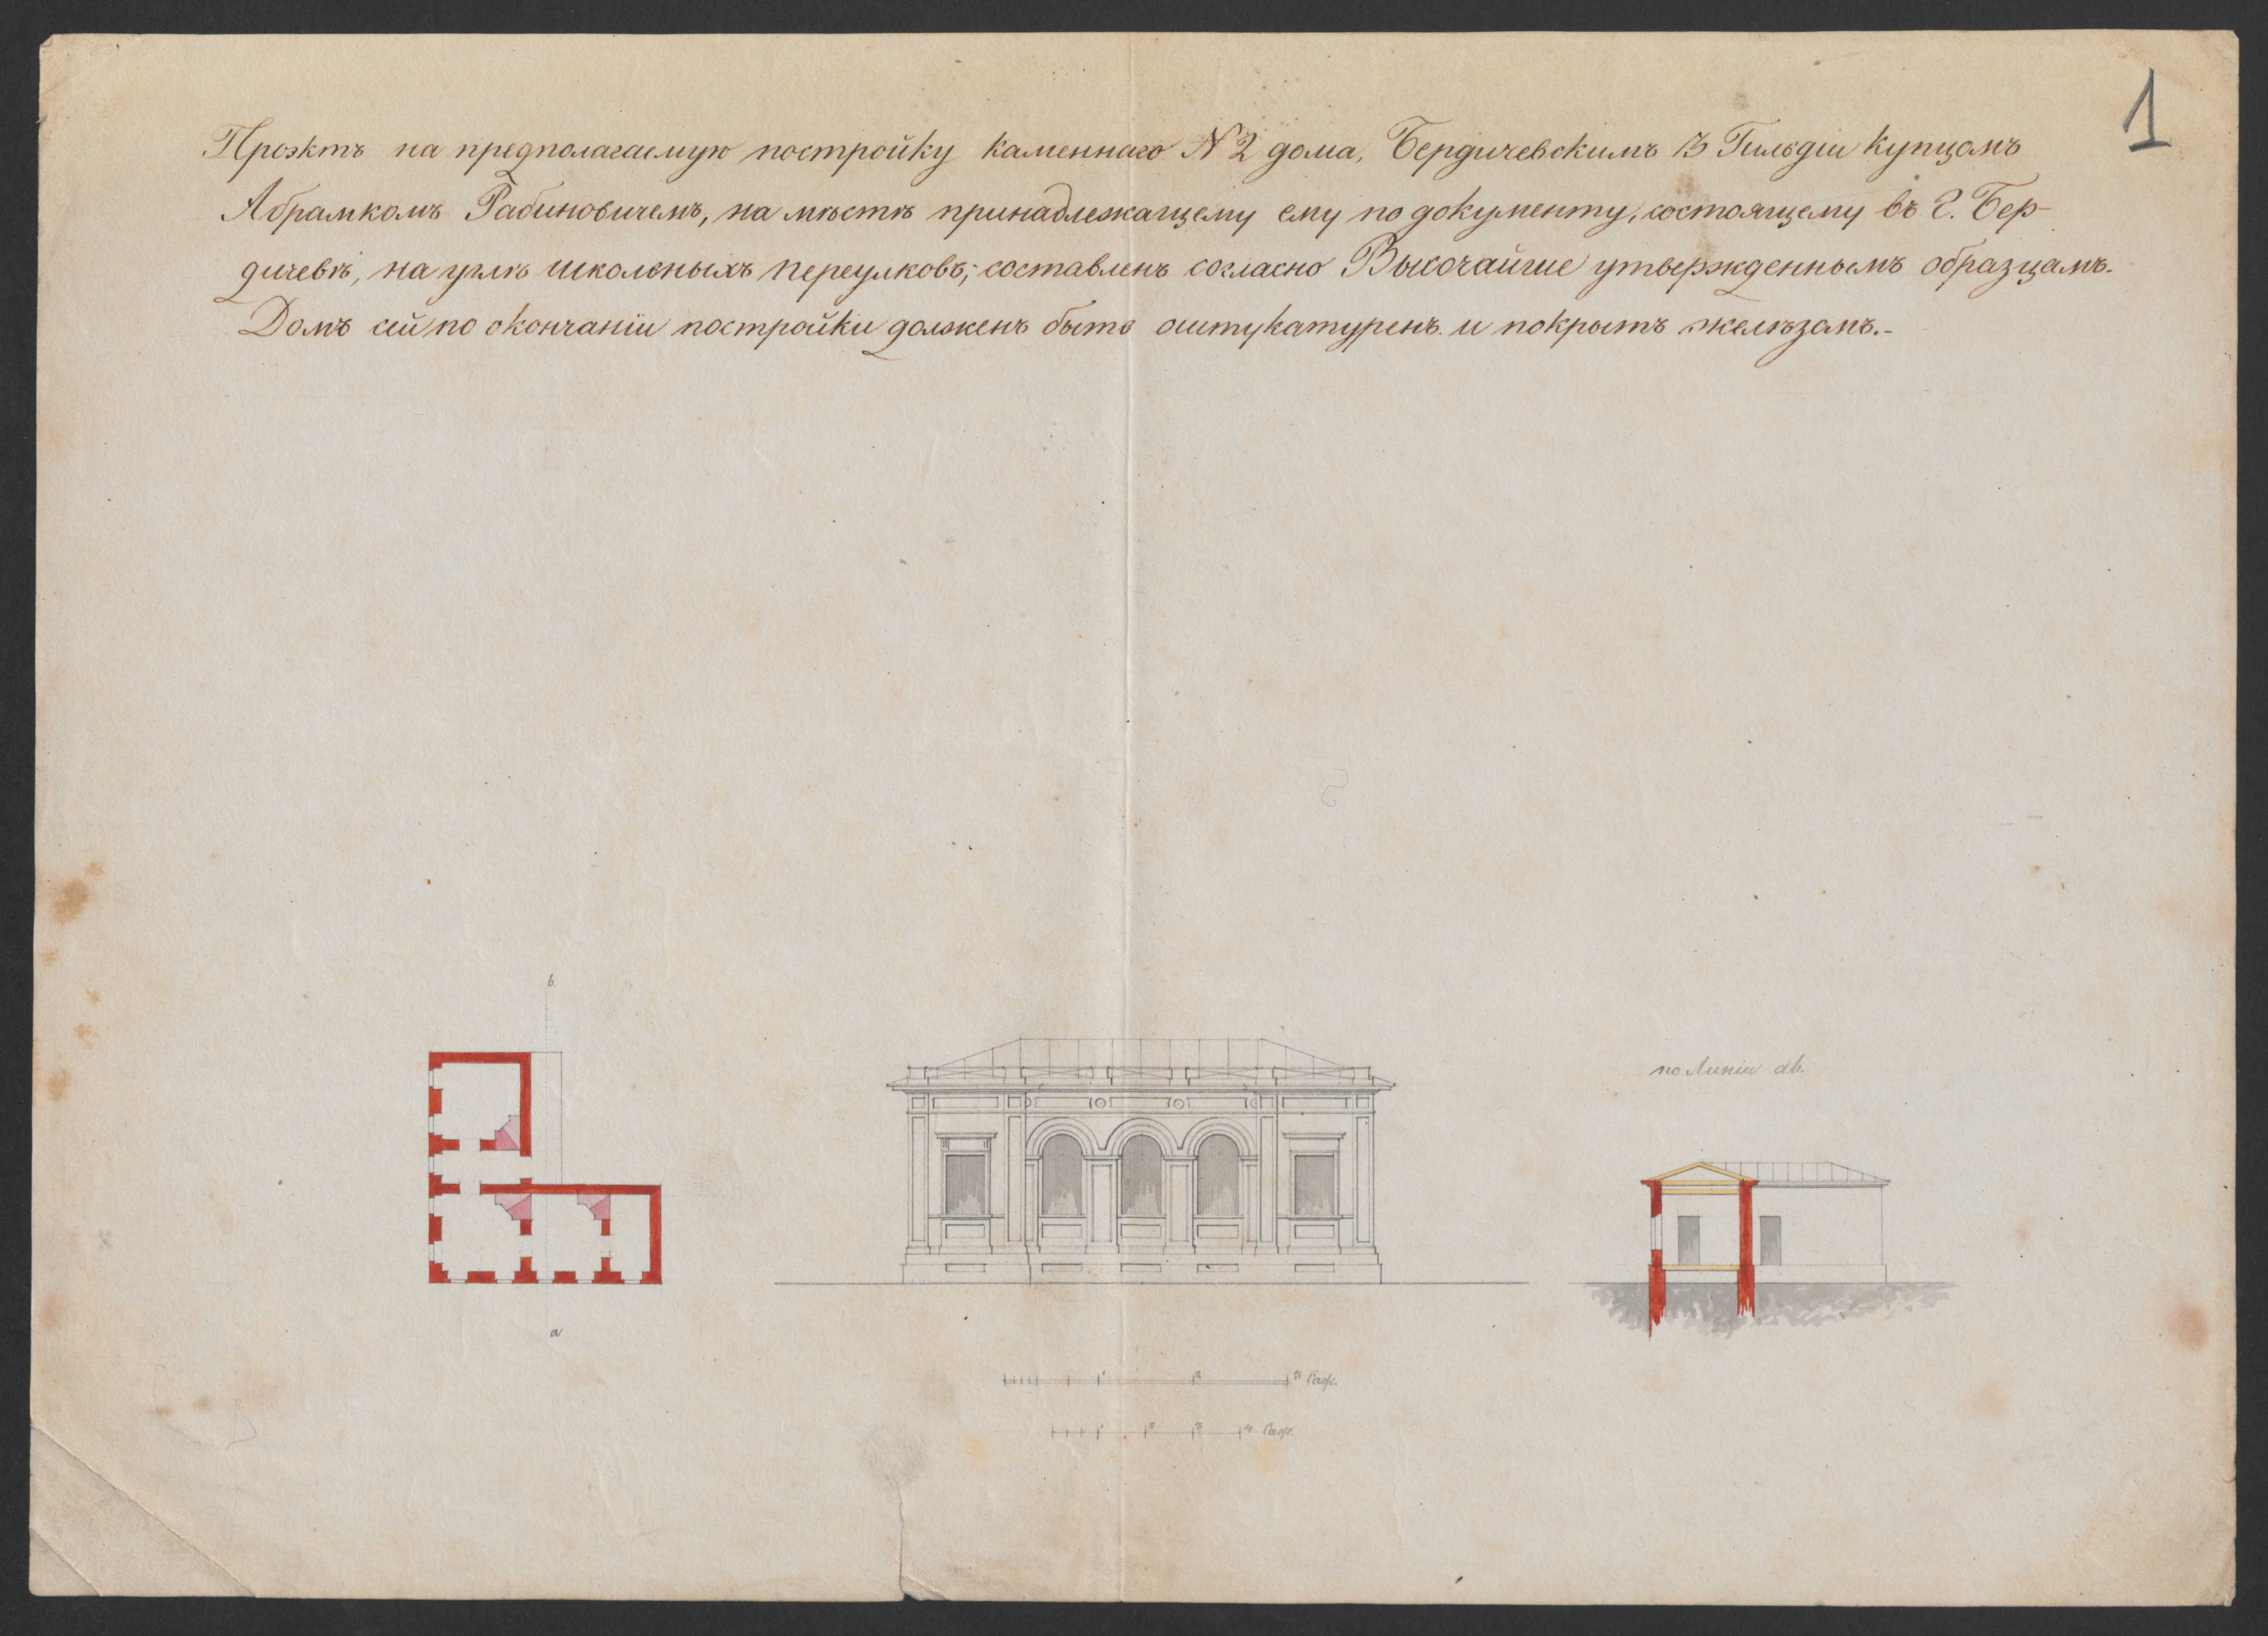 1
Проэктъ на предполагаемую постройку каменнаго N 2 дома, Бердичевскимъ 3 Гильдіи купцомъ
Абрамкомъ Рабиновичемъ, на мѣстѣ принадлежащему ему по документу, состоящему въ г. Бер-
дичевѣ, на углѣ школьныхъ переулковъ; составленъ согласно Высочайше утвержденнымъ образцамъ.
Домъ сей по окончаніи постройки долженъ быть оштукатуренъ и покрытъ желѣзомъ.-
b.
по линіи ab.
a
1 2 3 Саж.
1 2 3 4 Саж.